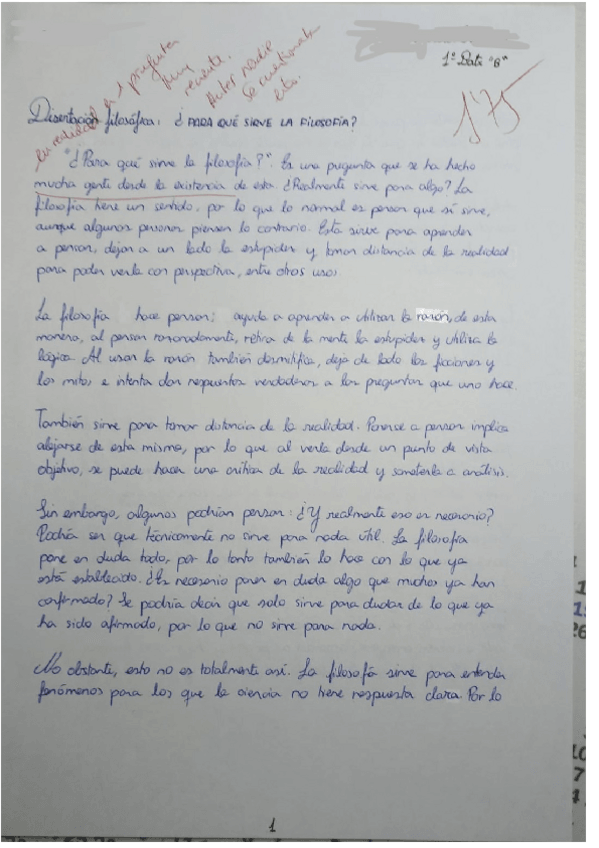 En realidad es 1 pregunta
muy
reciente.
Antes nadie
se cuestionaba
esto.
1º Bato "B"
1'75
Disertación filosófica: ¿PARA QUÉ SIRVE LA FILOSOFÍA?
"¿Para qué sirve la filosofía?". Es una pregunta que se ha hecho
mucha gente desde la existencia de esta. ¿Realmente sirve para algo? La
filosofía tiene un sentido, por lo que lo normal es pensar que sí sirve,
aunque algunas personas piensen lo contrario. Esta sirve para aprender
a pensar, dejar a un lado la estupidez y tomar distancia de la realidad
para poder verla con perspectiva, entre otros usos.
La filosofía hace pensar; ayuda a aprender a utilizar la razón, de esta
manera, al pensar razonadamente, retira de la mente la estupidez y utiliza la
lógica. Al usar la razón también desmitifica, deja de lado las ficciones y
los mitos, e intenta dar respuestas verdaderas a las preguntas que uno hace.
También sirve para tomar distancia de la realidad. Pararse a pensar implica
alejarse de esta misma, por lo que al verla desde un punto de vista
objetivo, se puede hacer una crítica de la realidad y someterla a análisis.
Sin embargo, algunos podrían pensar: ¿Y realmente eso es necesario?
Podría ser que técnicamente no sirve para nada útil. La filosofía
pone en duda todo, por lo tanto también lo hace con lo que ya
está establecido. ¿Es necesario poner en duda algo que muchos ya han
confirmado? Se podría decir que solo sirve para dudar de lo que ya
ha sido afirmado, por lo que no sirve para nada.
No obstante, esto no es totalmente así. La filosofía sirve para entender
fenómenos para los que la ciencia no tiene respuesta clara. Por lo
1